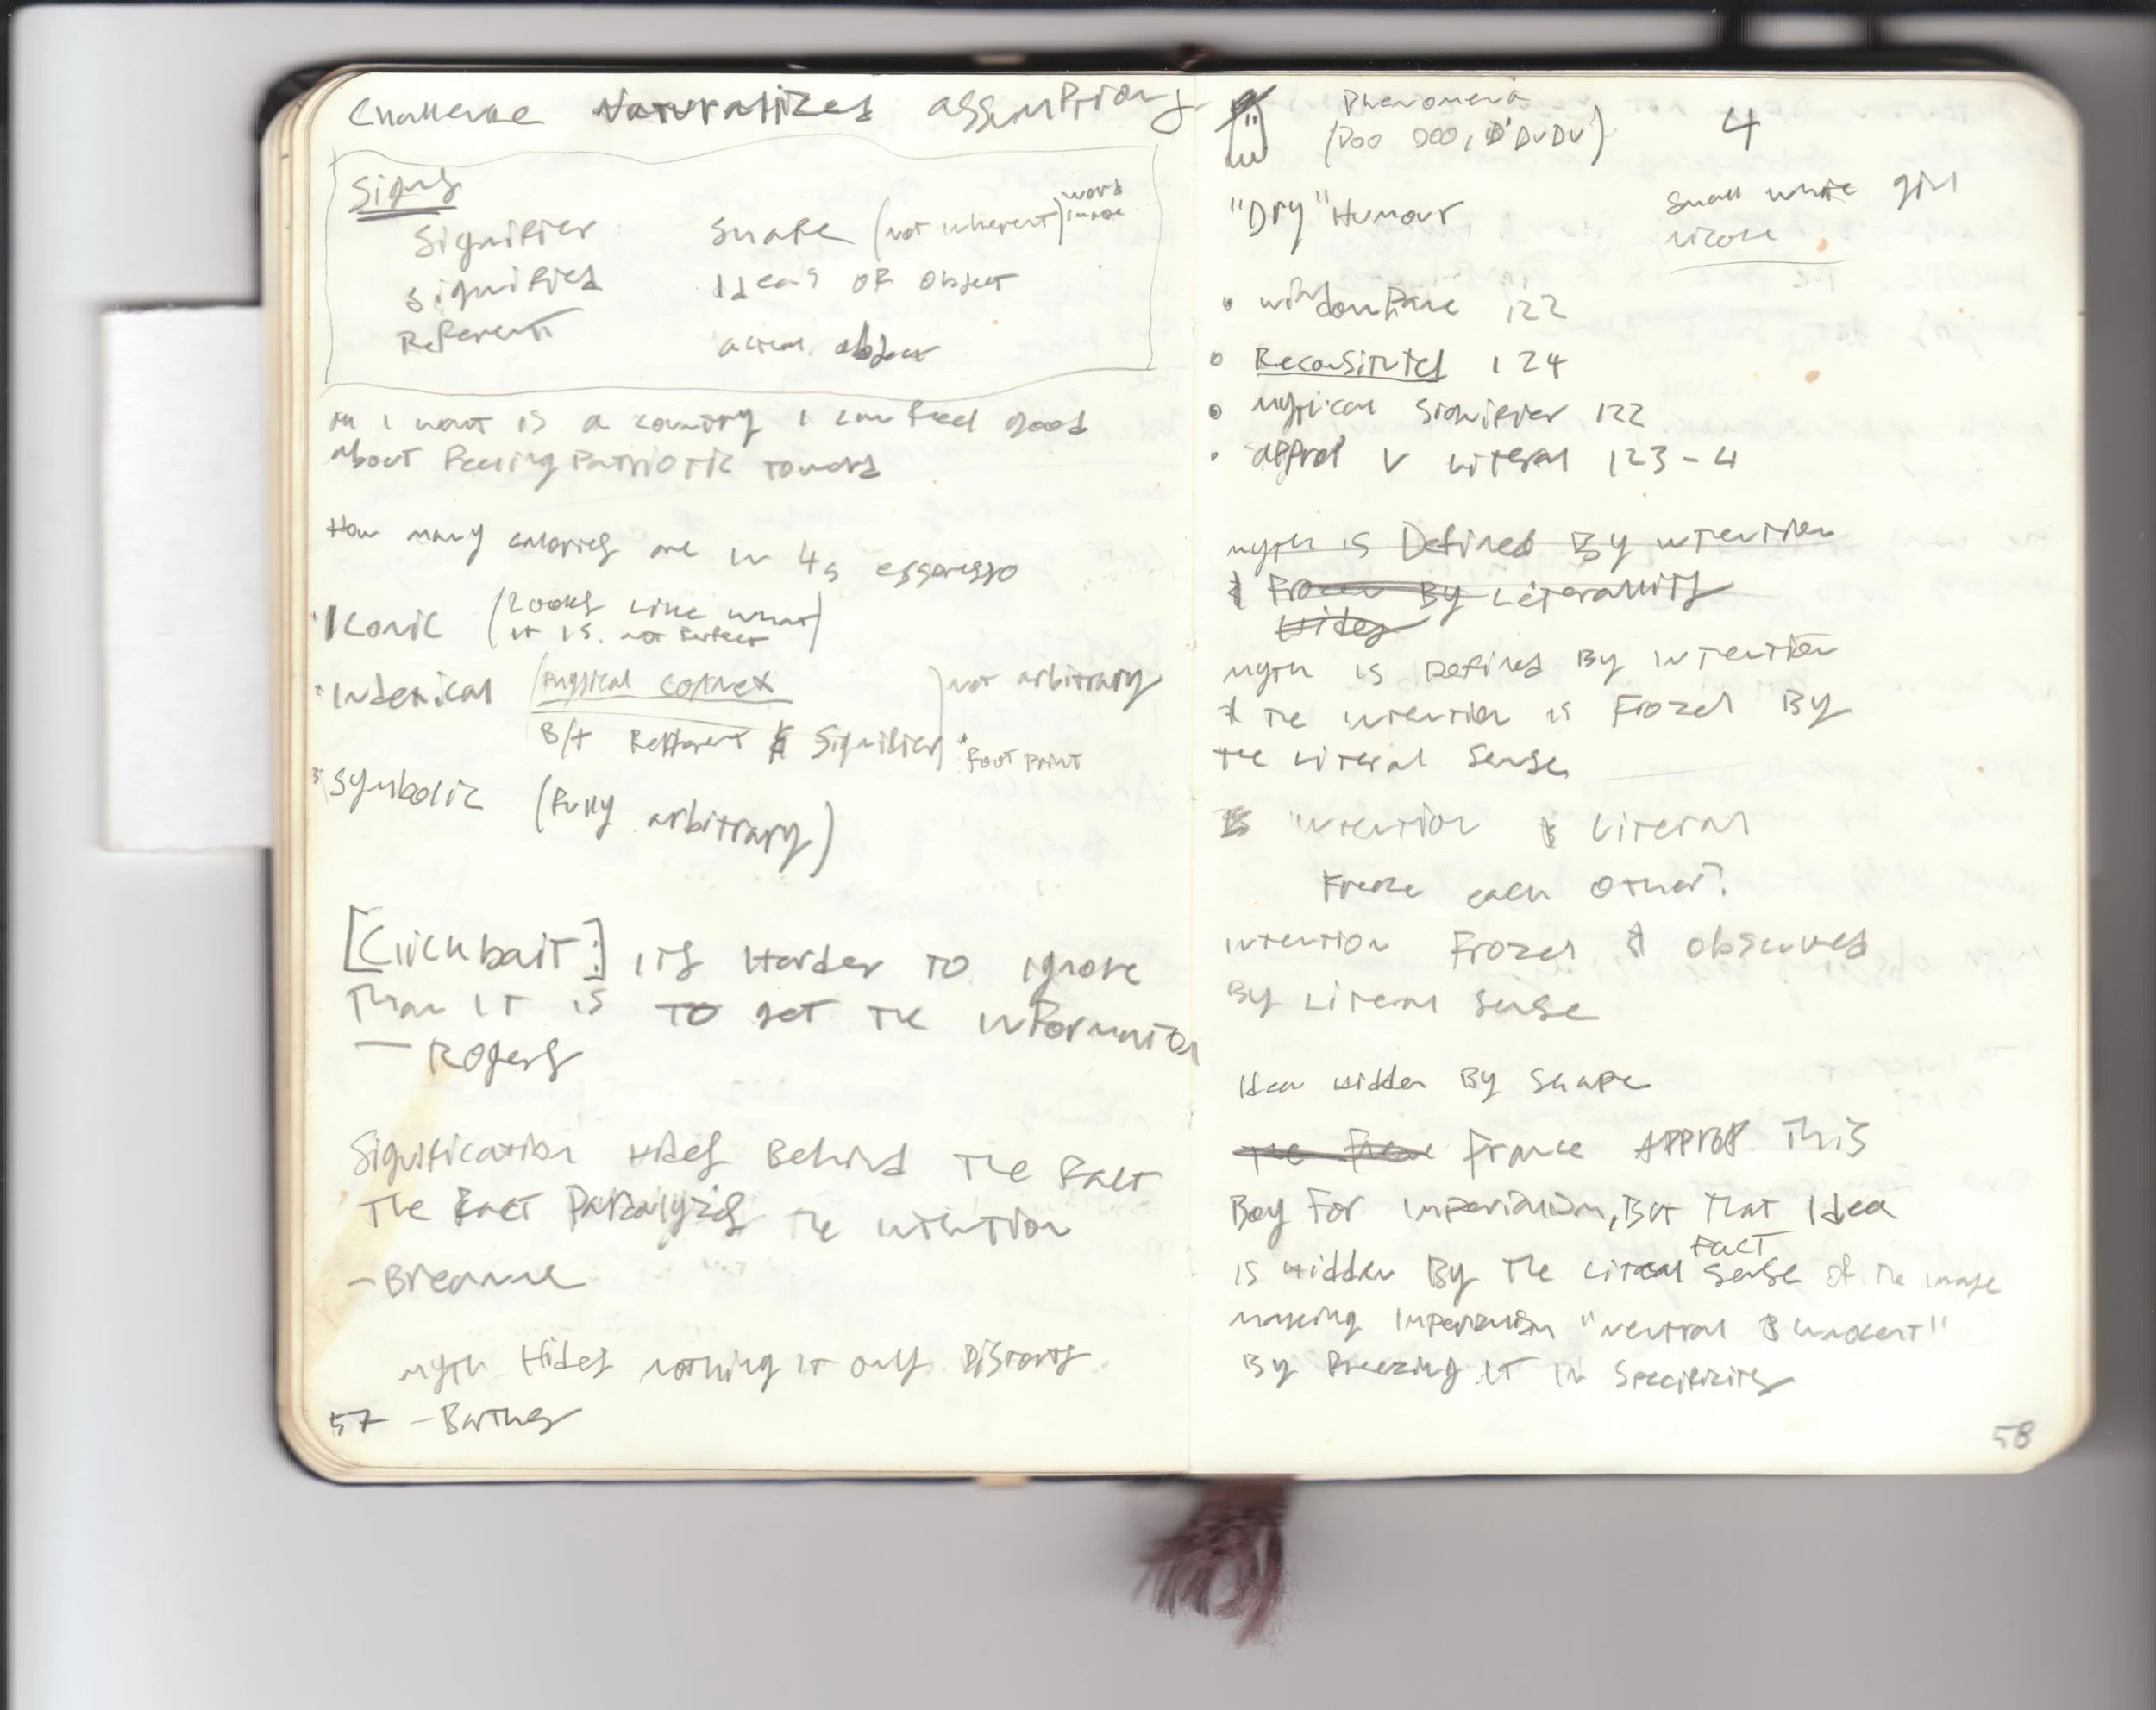 Challenge Naturalized assumptions
Signs
Signifier Shape (not inherent) word image
Signified Ideas of object
Referent actual object
All I want is a country I can feel good
about feeling patriotic toward
How many calories are in 4s espresso
1 Iconic (Looks like what
it is. not perfect)
2 Indexical (Physical connex
B/t Refferent & Signifier) not arbitrary
* Foot print
3 Symbolic (Fully arbitrary)
[Clickbait:] its Harder to ignore
Than it is to get the information
— Rogers
Signification Hides Behind The Fact
The Fact Paralyzes the intention
- Breanne
myth Hides nothing it only Distorts
57 - Barthes
Phenomena
(Doo Doo, D'DuDu) 4
"Dry" Humour
small white girl
nicole
• windowpane 122
• Reconstituted 124
• mythical signifier 122
• approp v Literal 123-4
myth is Defined By intention
& Frozen By Literallity
Hides
myth is Defined By intention
& the intention is Frozen By
the Literal Sense
intention & Literal
Freeze each other?
intention Frozen & observed
By Literal Sense
Idea Hidden By Shape
The France approp. This
Boy For imperialism, But That Idea
is Hidden By The Literal Sense of the image
Fact
making Imperialism "neutral & innocent"
By Freezing it in specificity
58